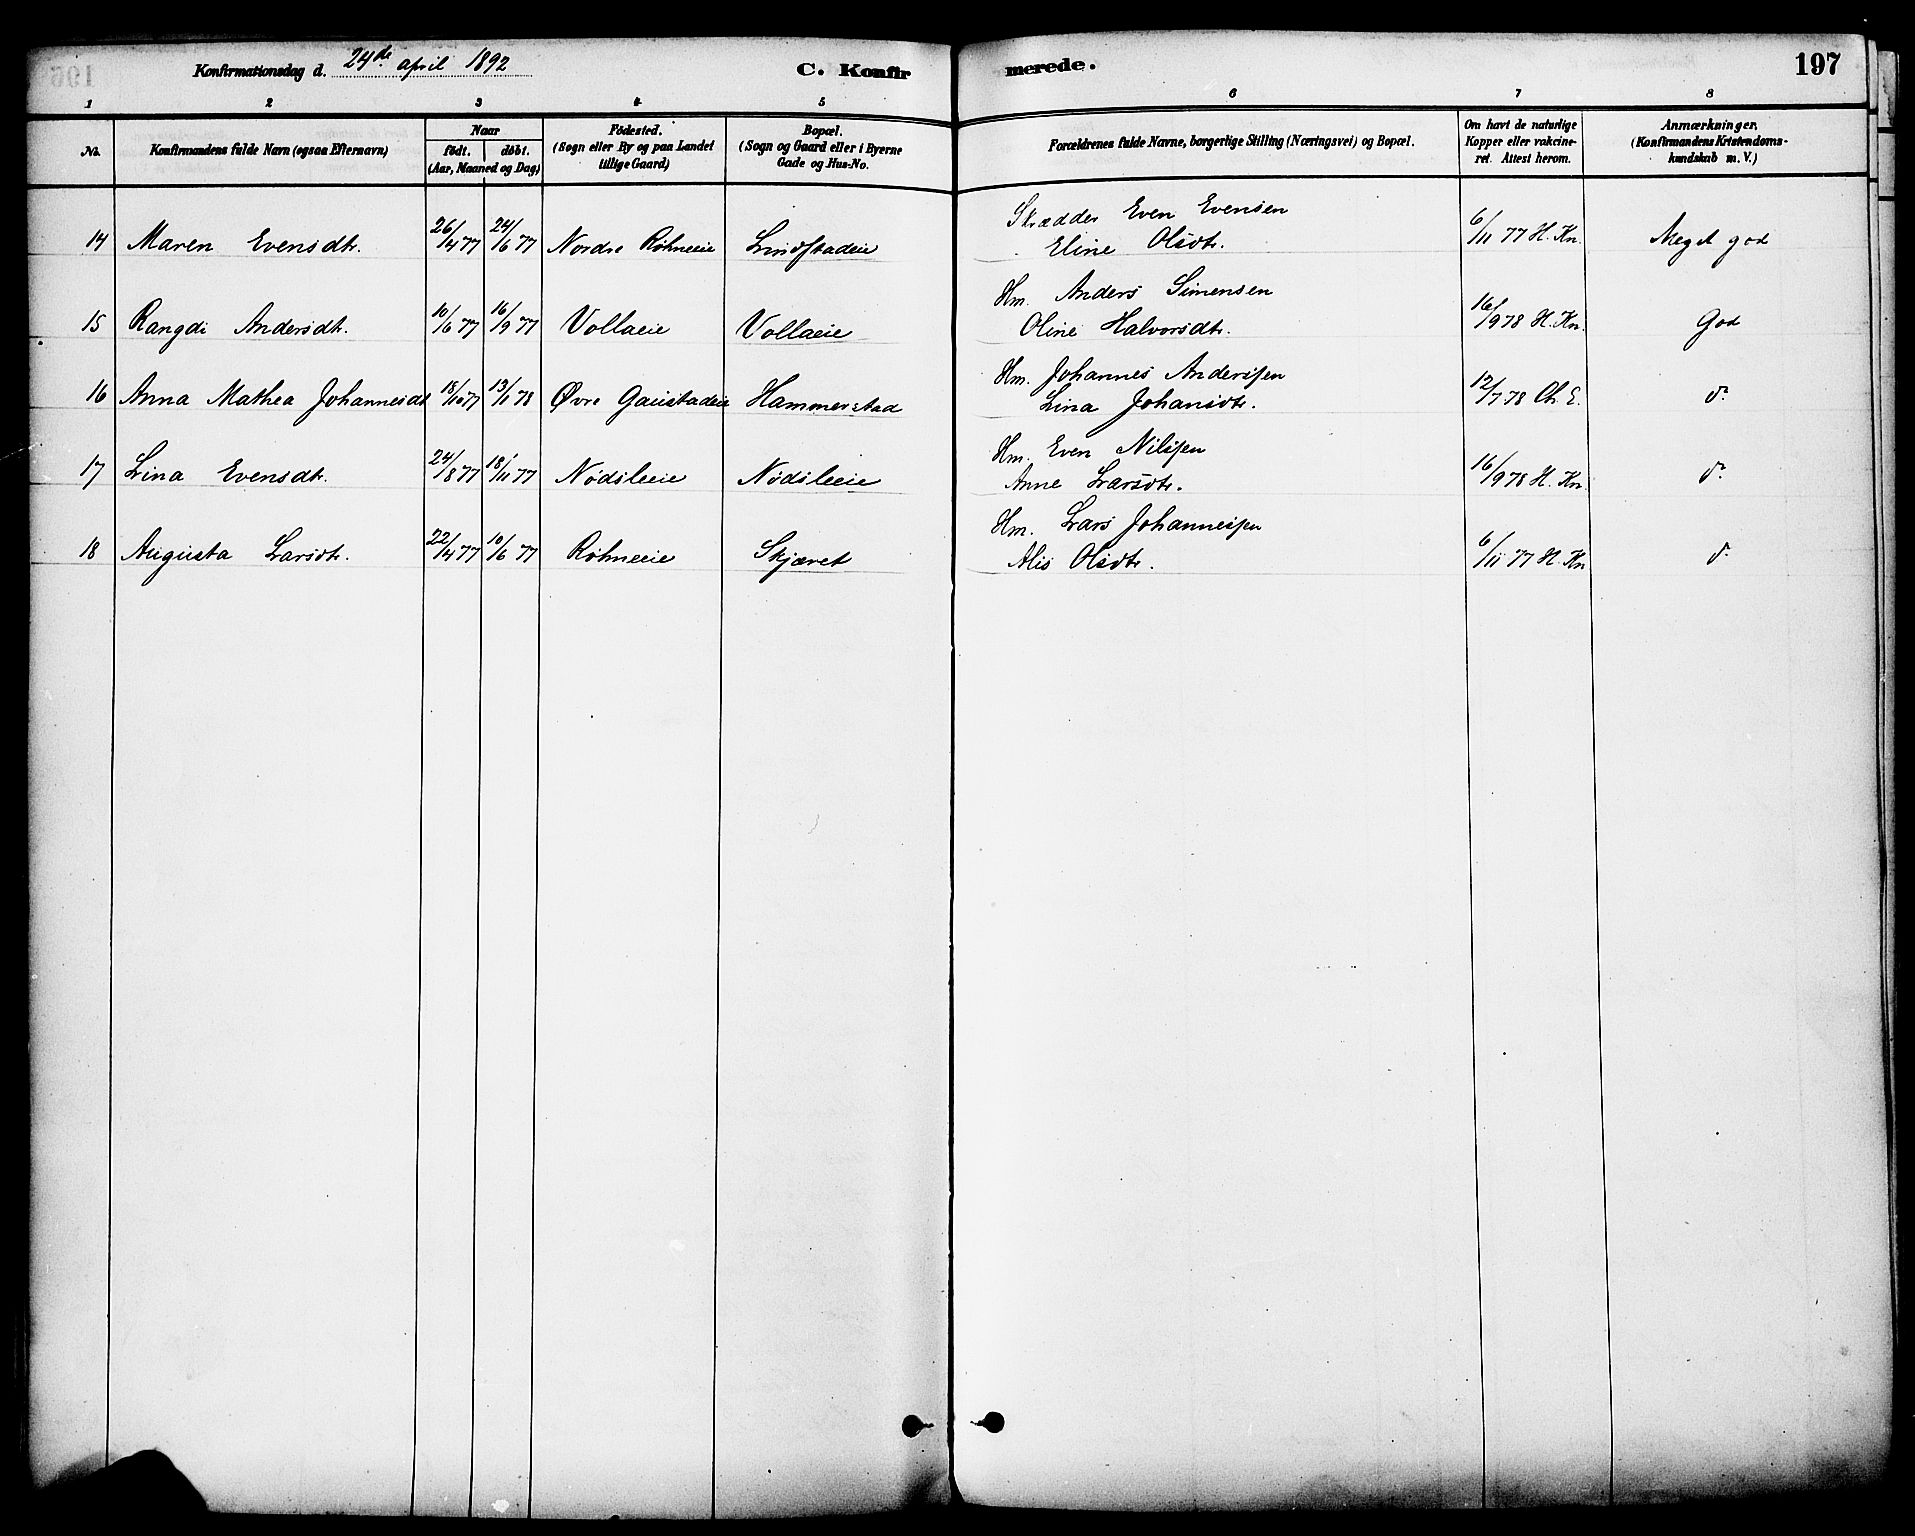 Konfirmationsdag d. 24de april 1892 C. Konfirmerede. 197
1 2 3 4 5 6 7 8
No. Konfirmandens fulde Navn (ogsaa Efternavn) Naar født. døbt. (Aar, Maaned og Dag) Fødested. (Sogn eller By og paa Landet tillige Gaard) Bopæl. (Sogn og Gaard eller i Byerne Gade og Hus-No. Forældrenes fulde Navne, borgerlige Stilling (Næringsvei) og Bopæl. Om havt de naturlige Kopper eller vakcineret. Attest herom. Anmærkninger. (Konfirmandens Kristendomskundskab m. V.)
Skrædder Even Evensen
14 Maren Evensdtr. 26/4 77 24/6 77 Nordre Røhneeie Lundstadeie Eline Olsdtr. 6/11 77 H. Kn. Meget god
Hm. Anders Simensen
15 Rangdi Andersdtr. 10/6 77 16/9 77 Vollaeie Vollaeie Oline Halvorsdtr. 16/9 78 H. Kn. God
Hm. Johannes Anderssen
16 Anna Mathea Johannesdt 18/10 77 13/1 78 Øvre Gaustadeie Hammerstad Lina Johansdtr. 12/7 78 Ch. E. do
Hm. Even Nilssen
17 Lina Evensdtr. 24/8 77 18/11 77 Nødsleeie Nødsleeie Anne Larsdtr. 16/9 78 H. Kn. do
Hm. Lars Johannessen
18 Augusta Larsdtr. 22/4 77 10/6 77 Røhneeie Skjæret Alis Olsdtr. 6/11 77 H. Kn do